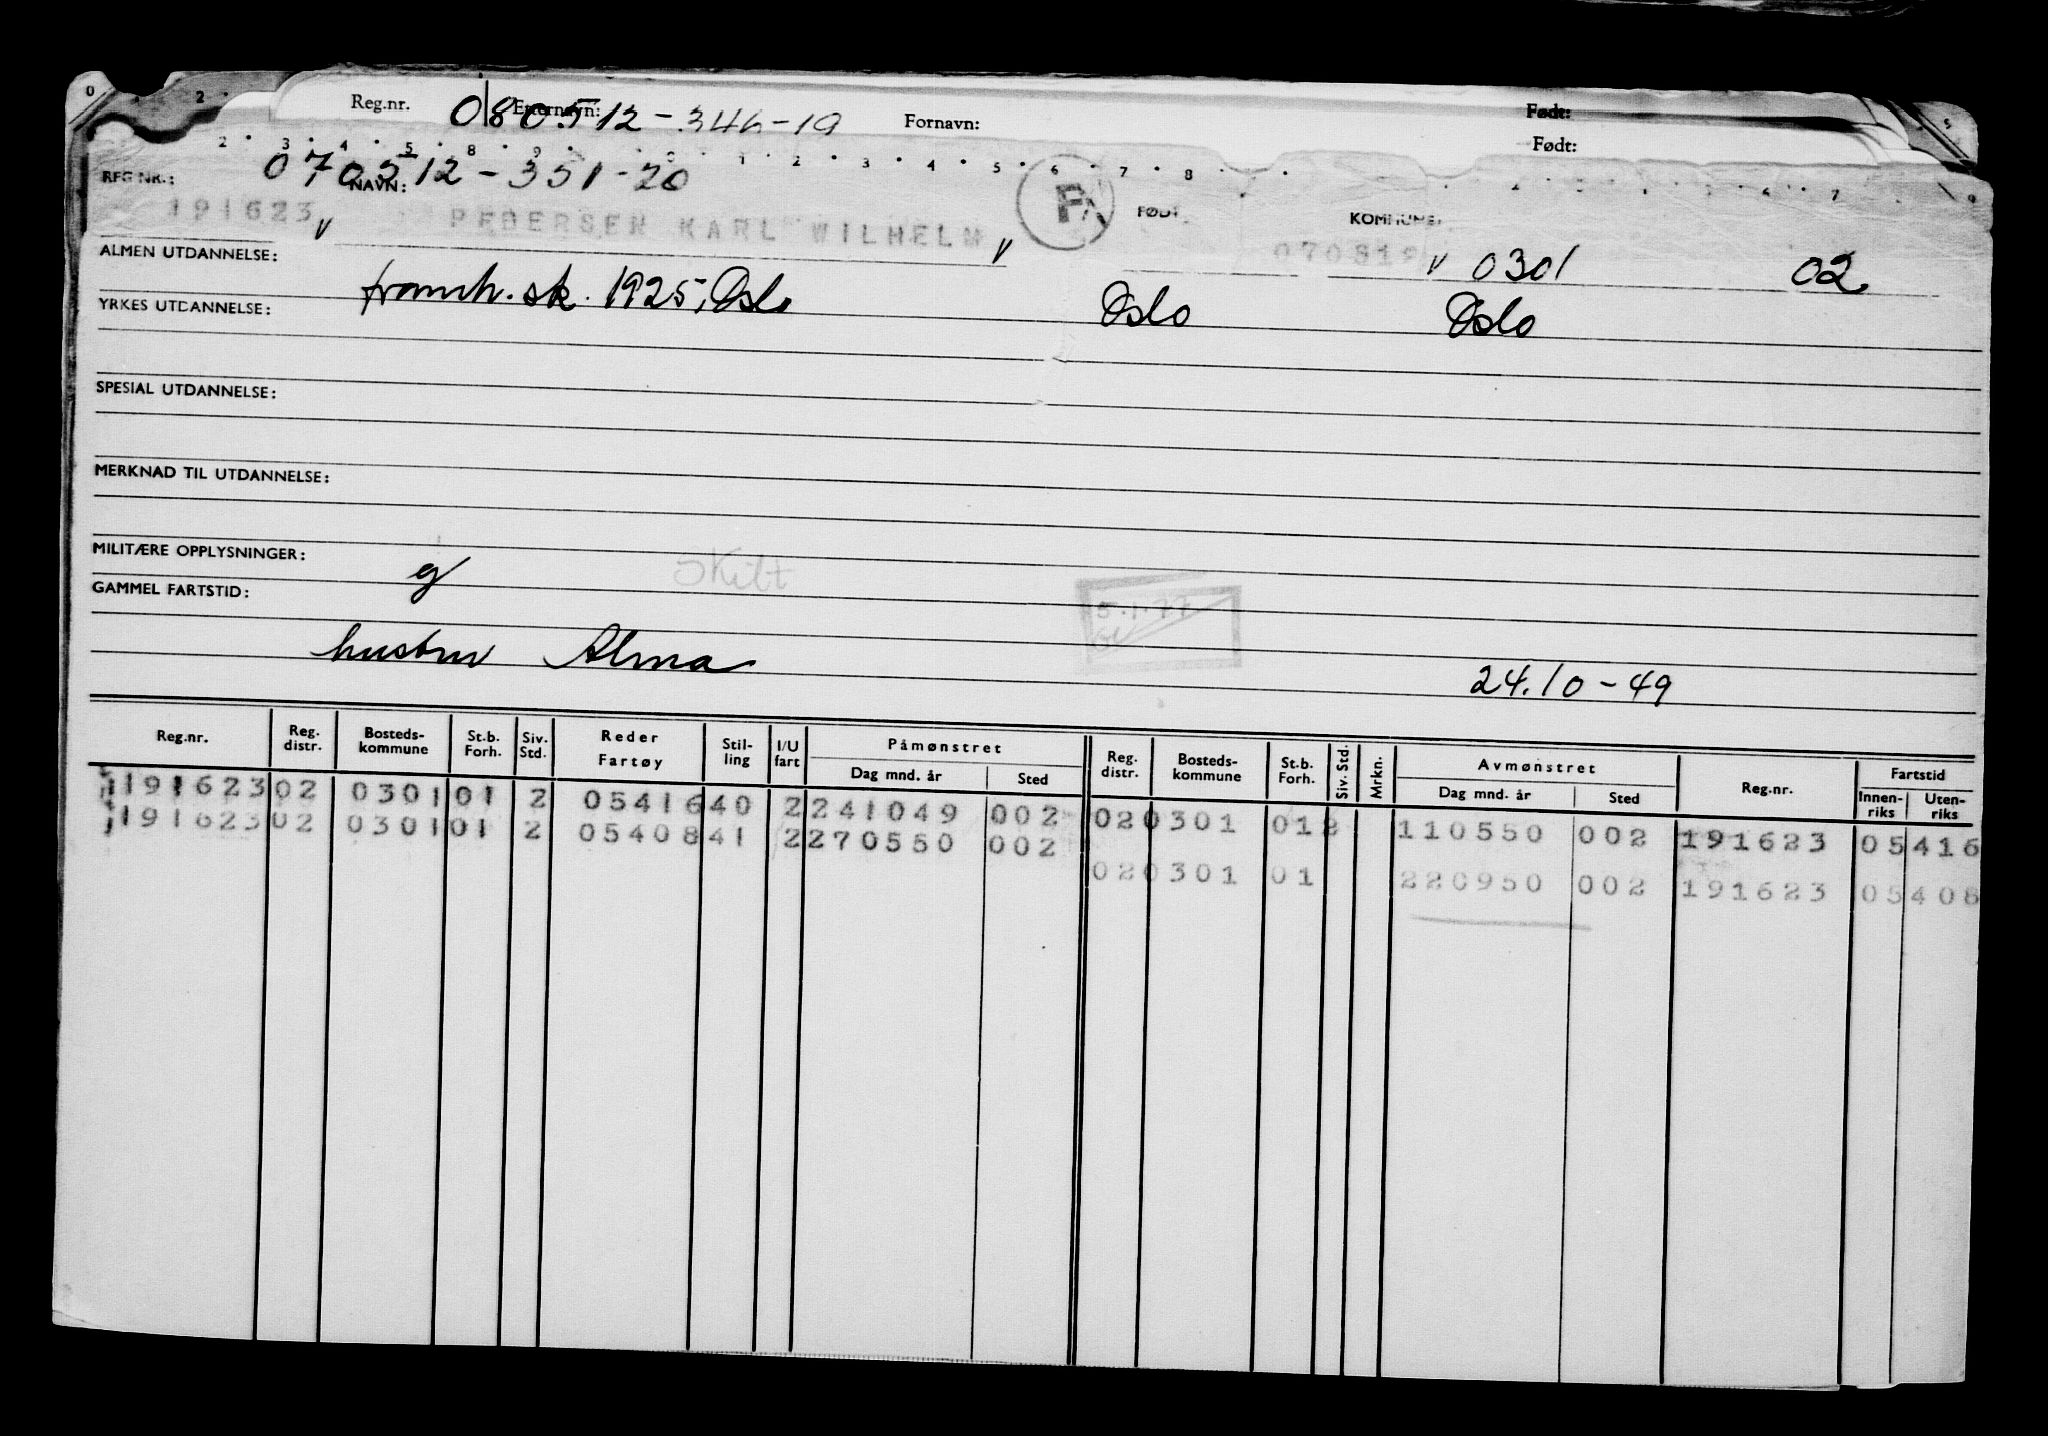 Reg.nr. Etternavn: 080512-346-19 Fornavn: Født:
Født:
REG NR.: 070512-351-20 NAVN: FØDT KOMMUNE:
191623 PEDERSEN KARL WILHELM 0301 02
ALMEN UTDANNELSE: framh. sk. 1925, Oslo Oslo Oslo
YRKES UTDANNELSE:
SPESIAL UTDANNELSE:
MERKNAD TIL UTDANNELSE:
MILITÆRE OPPLYSNINGER: g Skilt
GAMMEL FARTSTID: 5.1.77
hustru Alma 24.10-49
Reg.nr. Reg. distr. Bosteds-kommune St.b. Forh. Siv. Std. Reder Fartøy Stil-ling I/U fart Påmønstret Dag mnd. år Sted Reg. distr. Bosteds-kommune St.b. Forh. Siv. Std. Mrkn. Avmønstret Dag mnd. år Sted Reg.nr. Fartstid Innen-riks Uten-riks
191623 02 0301 01 2 05416 40 2 241049 002 02 0301 01 2 110550 002 191623 05416
191623 02 0301 01 2 05408 41 2 270550 002
02 0301 01 220950 002 191623 05408